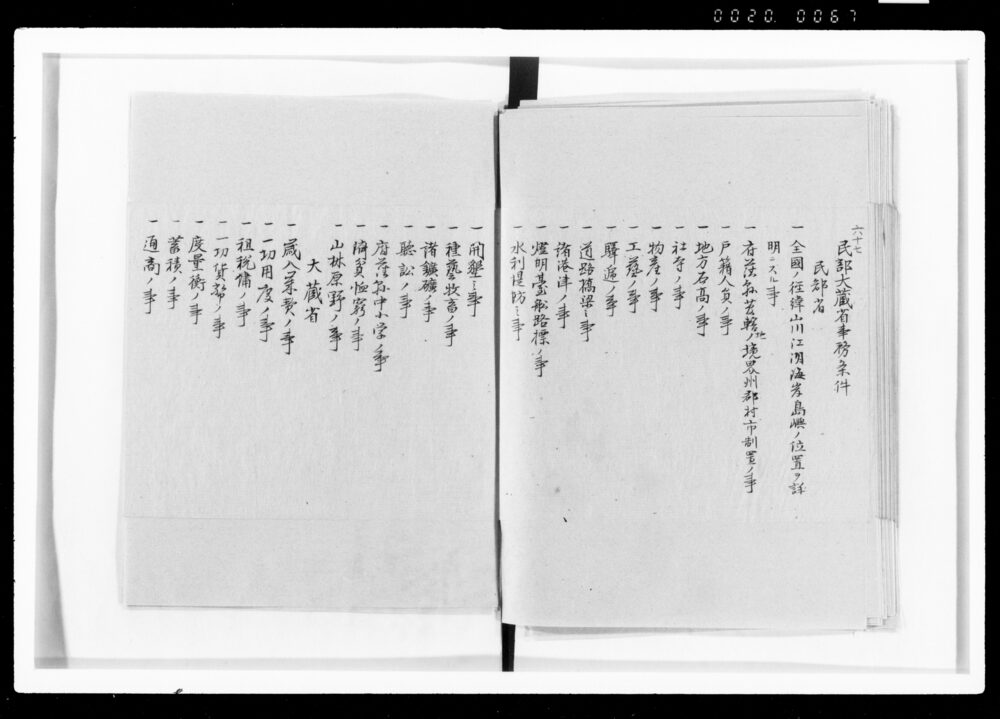 0020. 0067
六十七
民部大蔵省事務条件
民部省
一全國ノ徑緯山川江湖海岸島嶼ノ位置ヲ詳
明ニスル事
一府藩縣管轄地ノ境界州郡村市制置ノ事
一戸籍人員ノ事
一地方石高ノ事
一社寺ノ事
一物産ノ事
一工藝ノ事
一驛逓ノ事
一道路橋梁ノ事
一諸港津ノ事
一燈明臺船路標ノ事
一水利堤防ノ事
一開墾ノ事
一種藝牧畜ノ事
一諸鑛礦ノ事
一聽訟ノ事
一府藩縣中小学ノ事
一濟貧恤窮ノ事
一山林原野ノ事
大蔵省
一歳入歳費ノ事
一一切用度ノ事
一租税傭ノ事
一一切貨幣ノ事
一度量衡ノ事
一蓄積ノ事
一通商ノ事